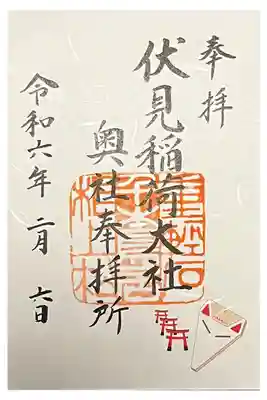 奉拝
伏見稲荷大社
奥社奉拝所
令和六年 二月 六日